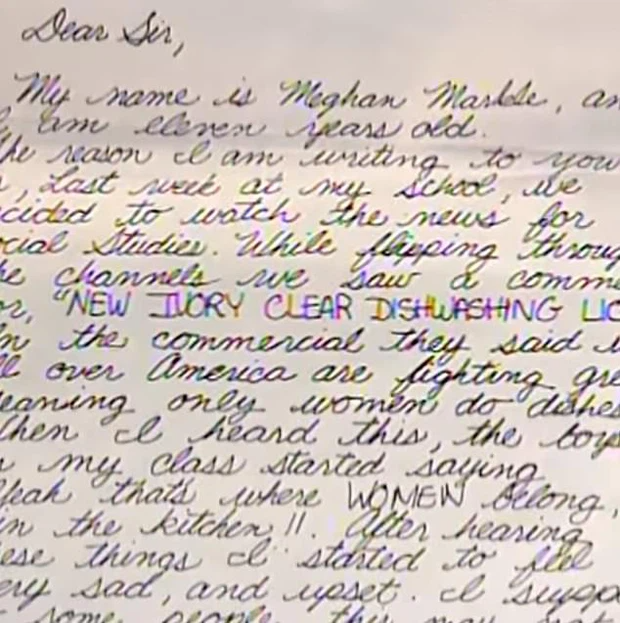 Dear Sir,
My name is Meghan Markle, an
I am eleven years old.
he reason I am writing to you
, Last week at my school, we
cided to watch the news for
ocial Studies. While flipping throug
he channels we saw a comme
or, "NEW IVORY CLEAR DISHWASHING LIQ
In the commercial they said
ll over America are fighting gre
eaning only women do dishes
hen I heard this, the boys
my class started saying
Yeah that's where WOMEN belong,
in the kitchen!!. After hearing
ese things I started to feel
ery sad, and upset. I suppo
some people this may not